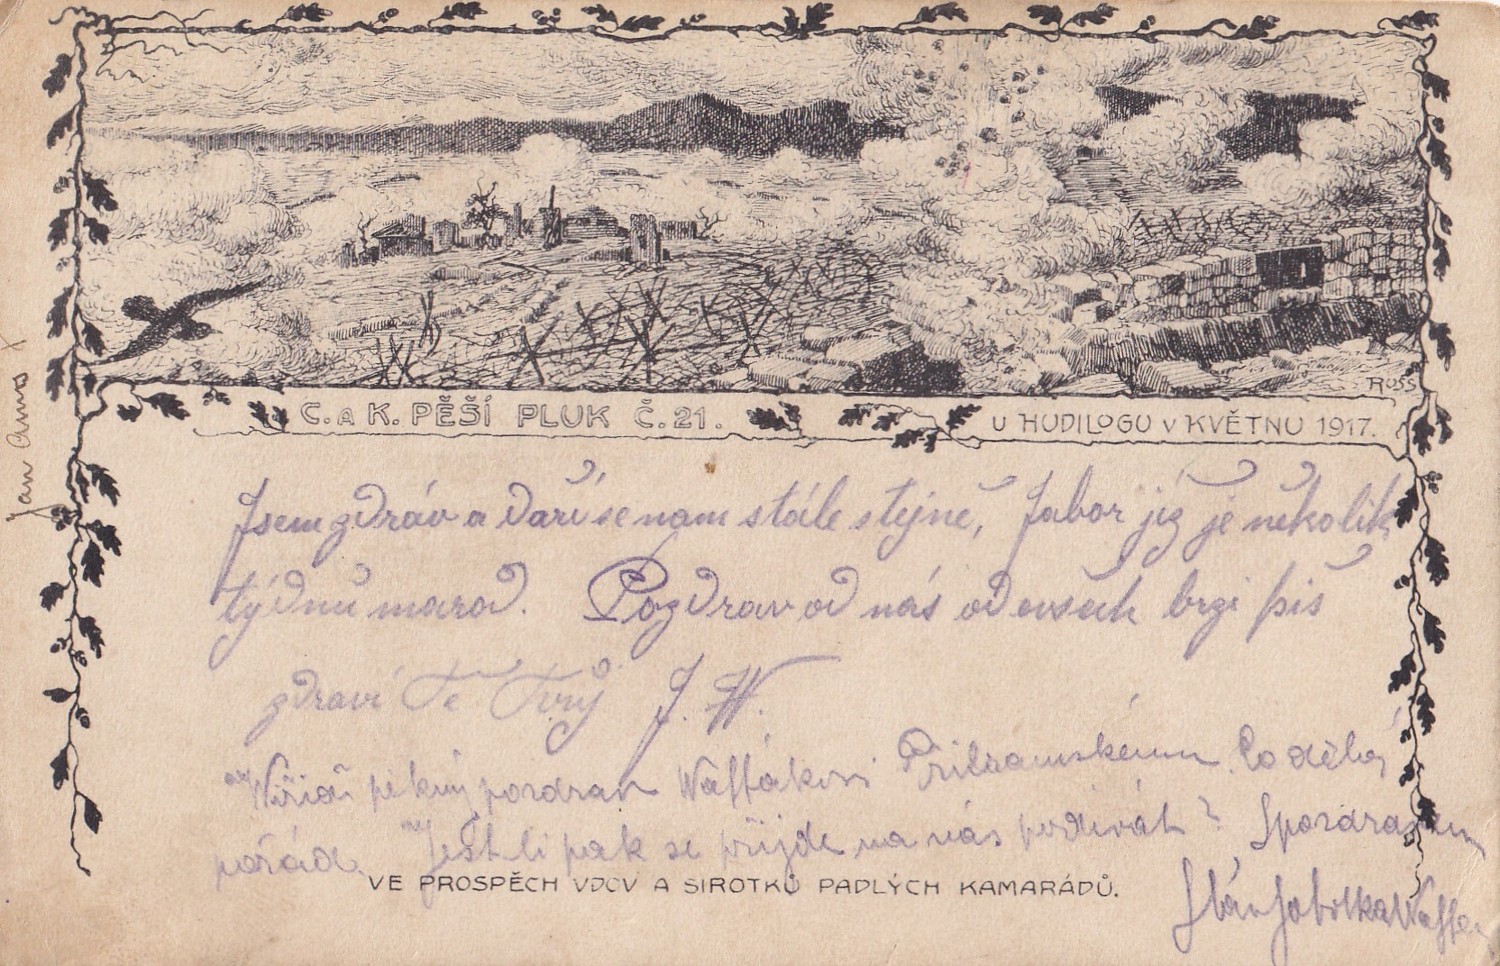 RUSS
C. A K. PĚŠÍ PLUK Č. 21.
U HUDILOGU V KVĚTNU 1917.
Jsem zdráv a daří se nam stále stejně, Jabor již je několik
týdnů marod. Pozdrav od nás od všech brzi piš
zdraví Tě Tvůj J. W.
pěkný pozdrav Příbramskému. Co dělá
pořád. Jestli pak se přijde na nás podívat? S pozdravem
VE PROSPĚCH VDOV A SIROTKŮ PADLÝCH KAMARÁDŮ.
Jan